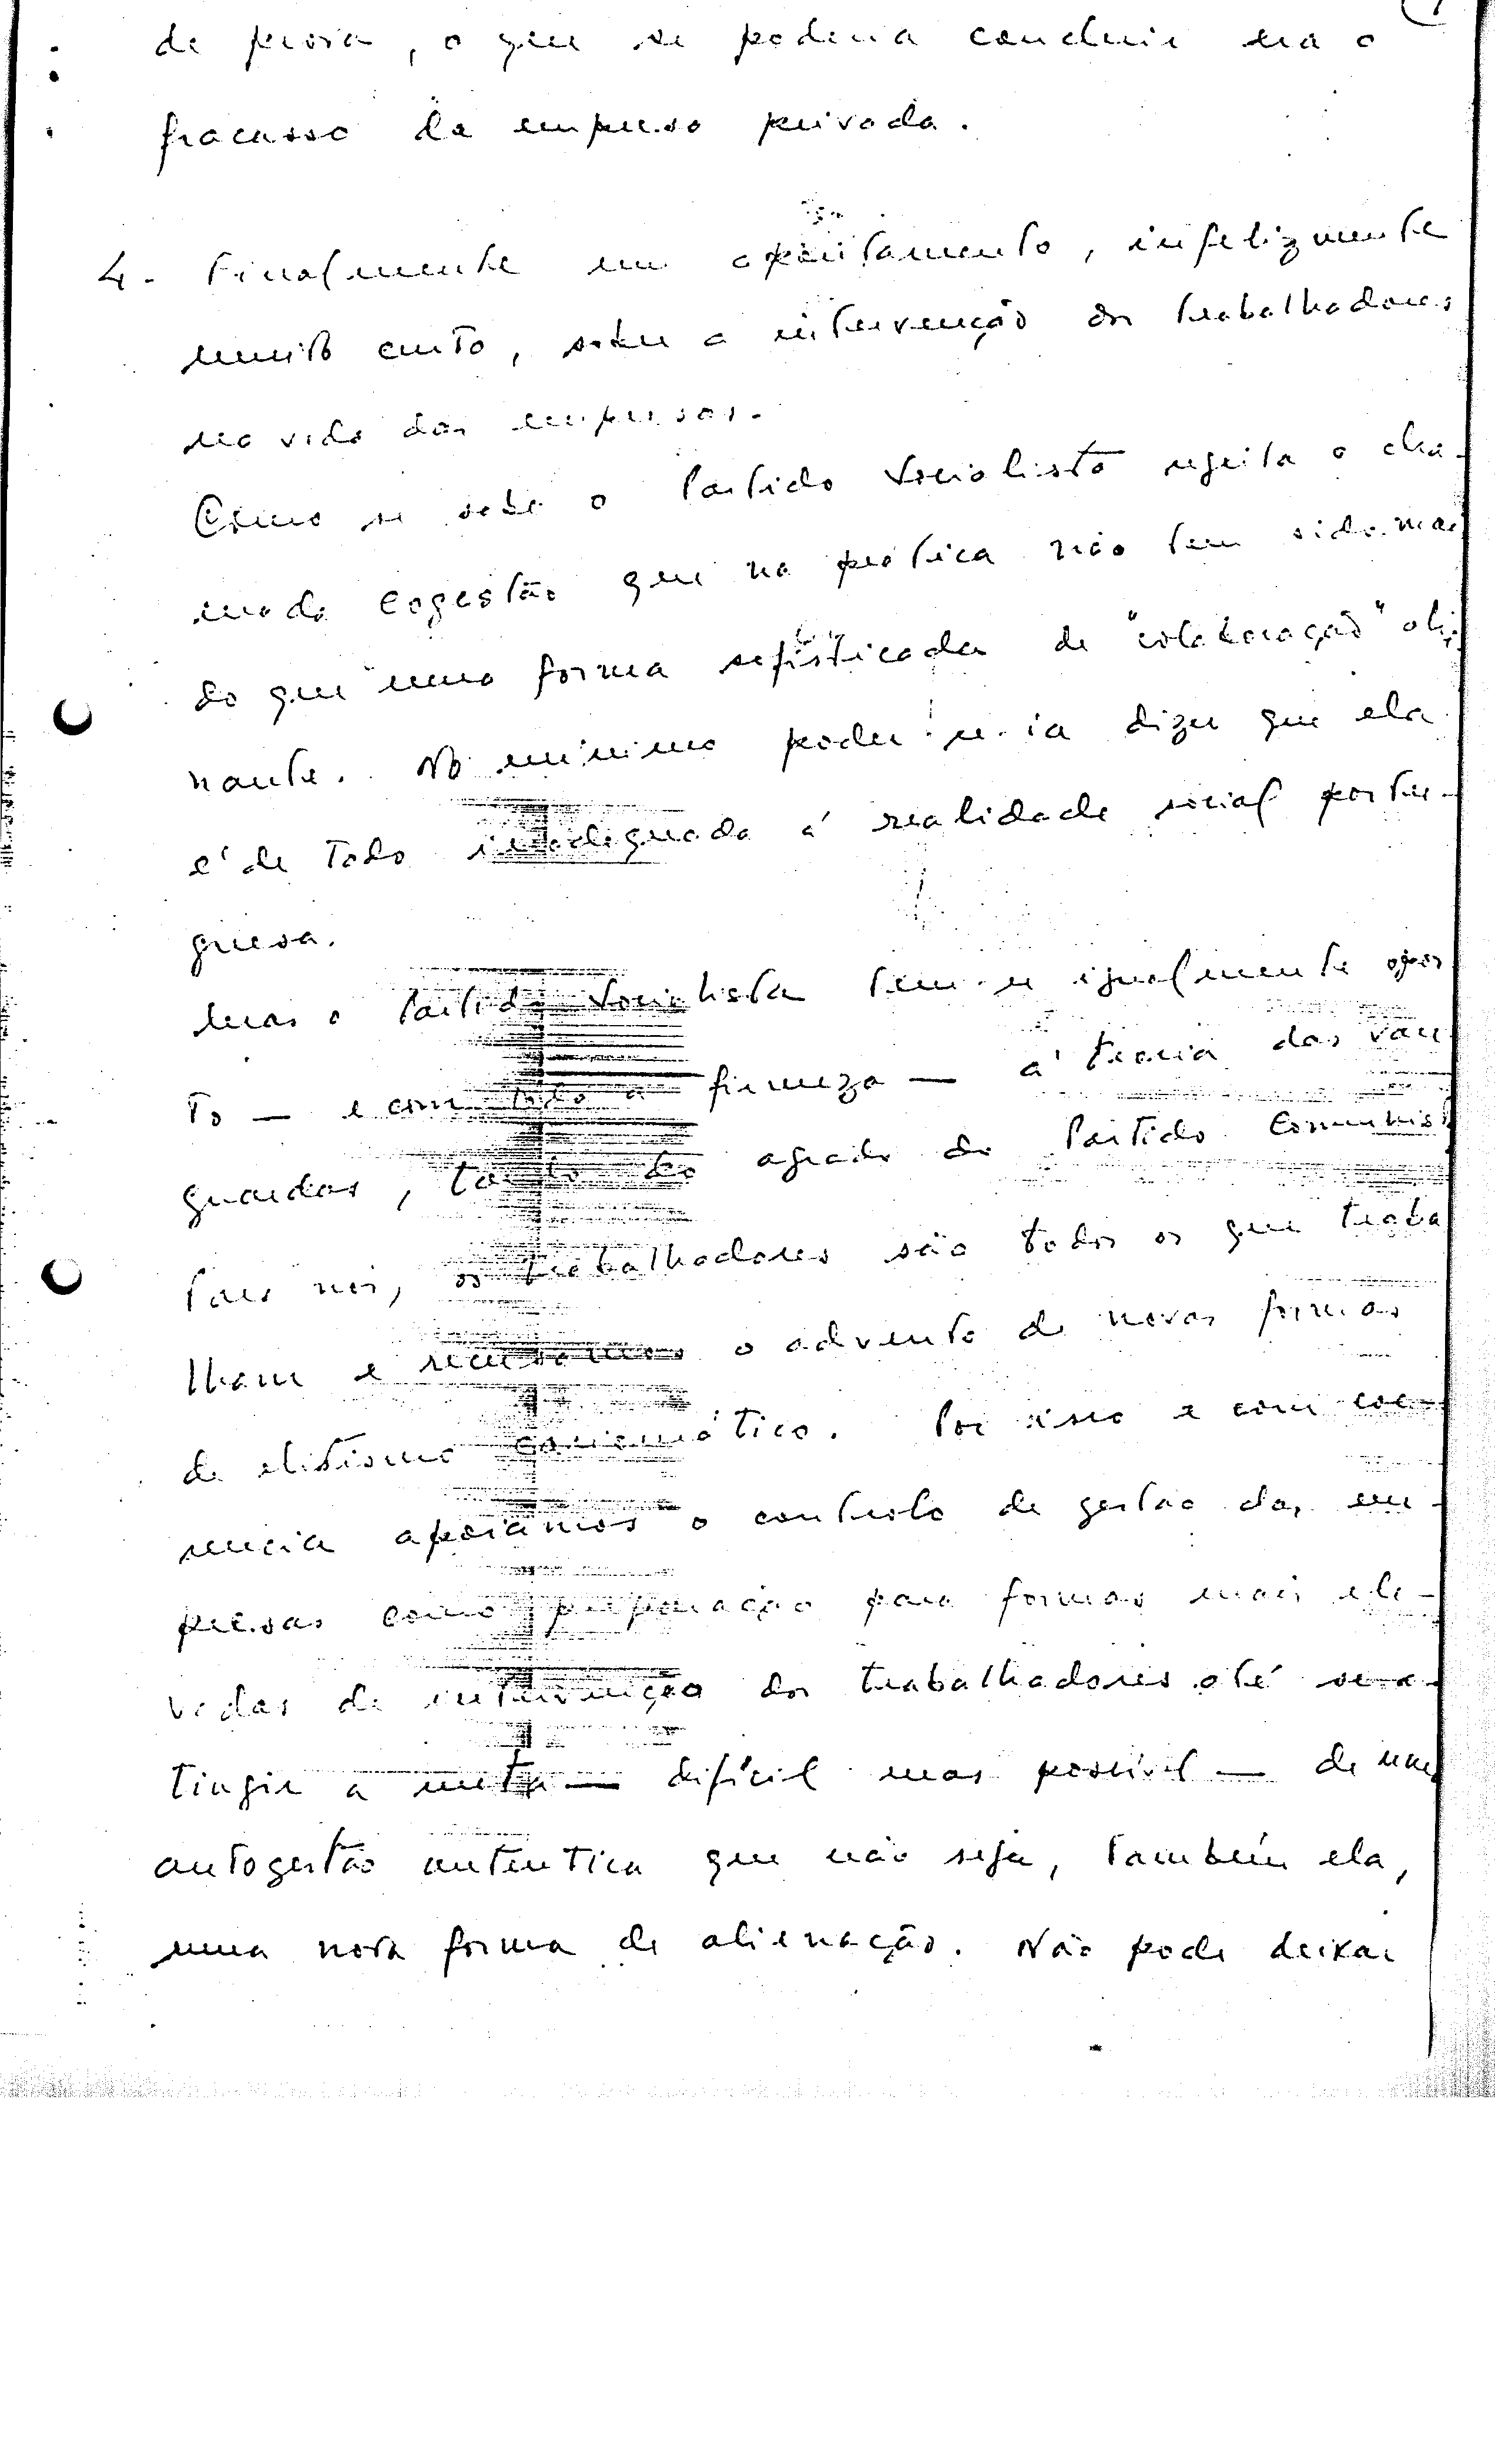 de prosa, o que se poderia concluir era o
fracasso da empresa privada.
4. Finalmente um apontamento, infelizmente
muito curto, sobre a intervenção dos trabalhadores
na vida das empresas.
Como se sabe o Partido Socialista rejeita a cha-
mada cogestão que na prática não tem sido mais
do que uma forma sofisticada de "colaboração" alie
nante. No mínimo poder-se-ia dizer que ela
é de todo inadequada à realidade social portu-
guesa.
Mas o Partido Socialista tem-se igualmente opos
to — e com toda a firmeza — à teoria das van
guardas, tanto do agrado do Partido Comunis
Para nós, os trabalhadores são todos os que traba
lham e recusamos o advento de novas formas
de elitismo Por isso e com coe-
rencia apoiamos o controlo de gestão das em-
presas como preparação para formas mais ele-
vadas de intervenção dos trabalhadores até se a-
tingir a meta — difícil mas possível — de uma
autogestão autêntica que não seja, também ela,
uma nova forma de alienação. Não pode deixar